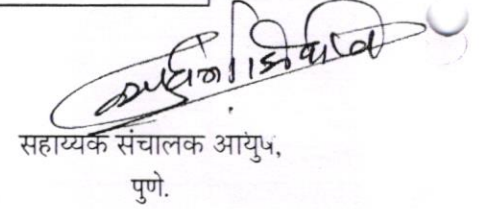 सहाय्यक संचालक आयुष,
पुणे.